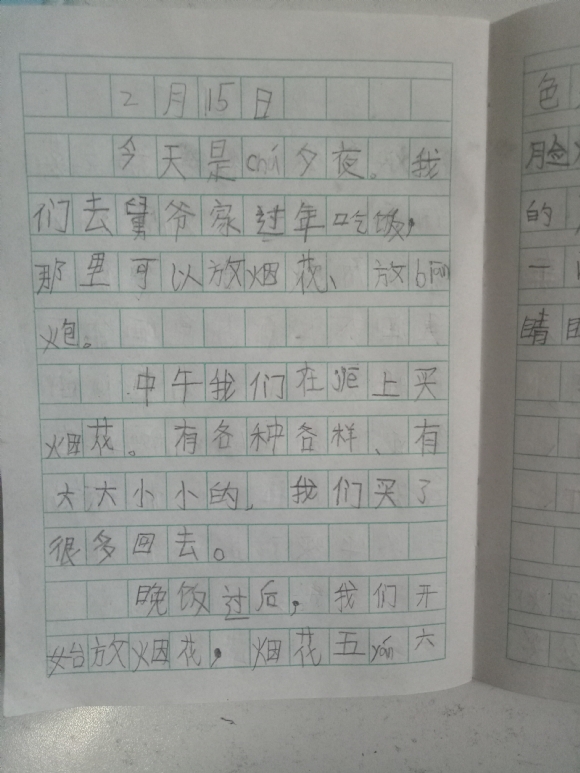 2月15日
今天是chú夕夜。我
们去舅爷家过年吃饭，
那里可以放烟花、放
炮。
中午我们在jiē上买
烟花。有各种各样、有
大大小小的，我们买了
很多回去。
晚饭过后，我们开
始放烟花，烟花五yán六
色
脸
的，
一
睛